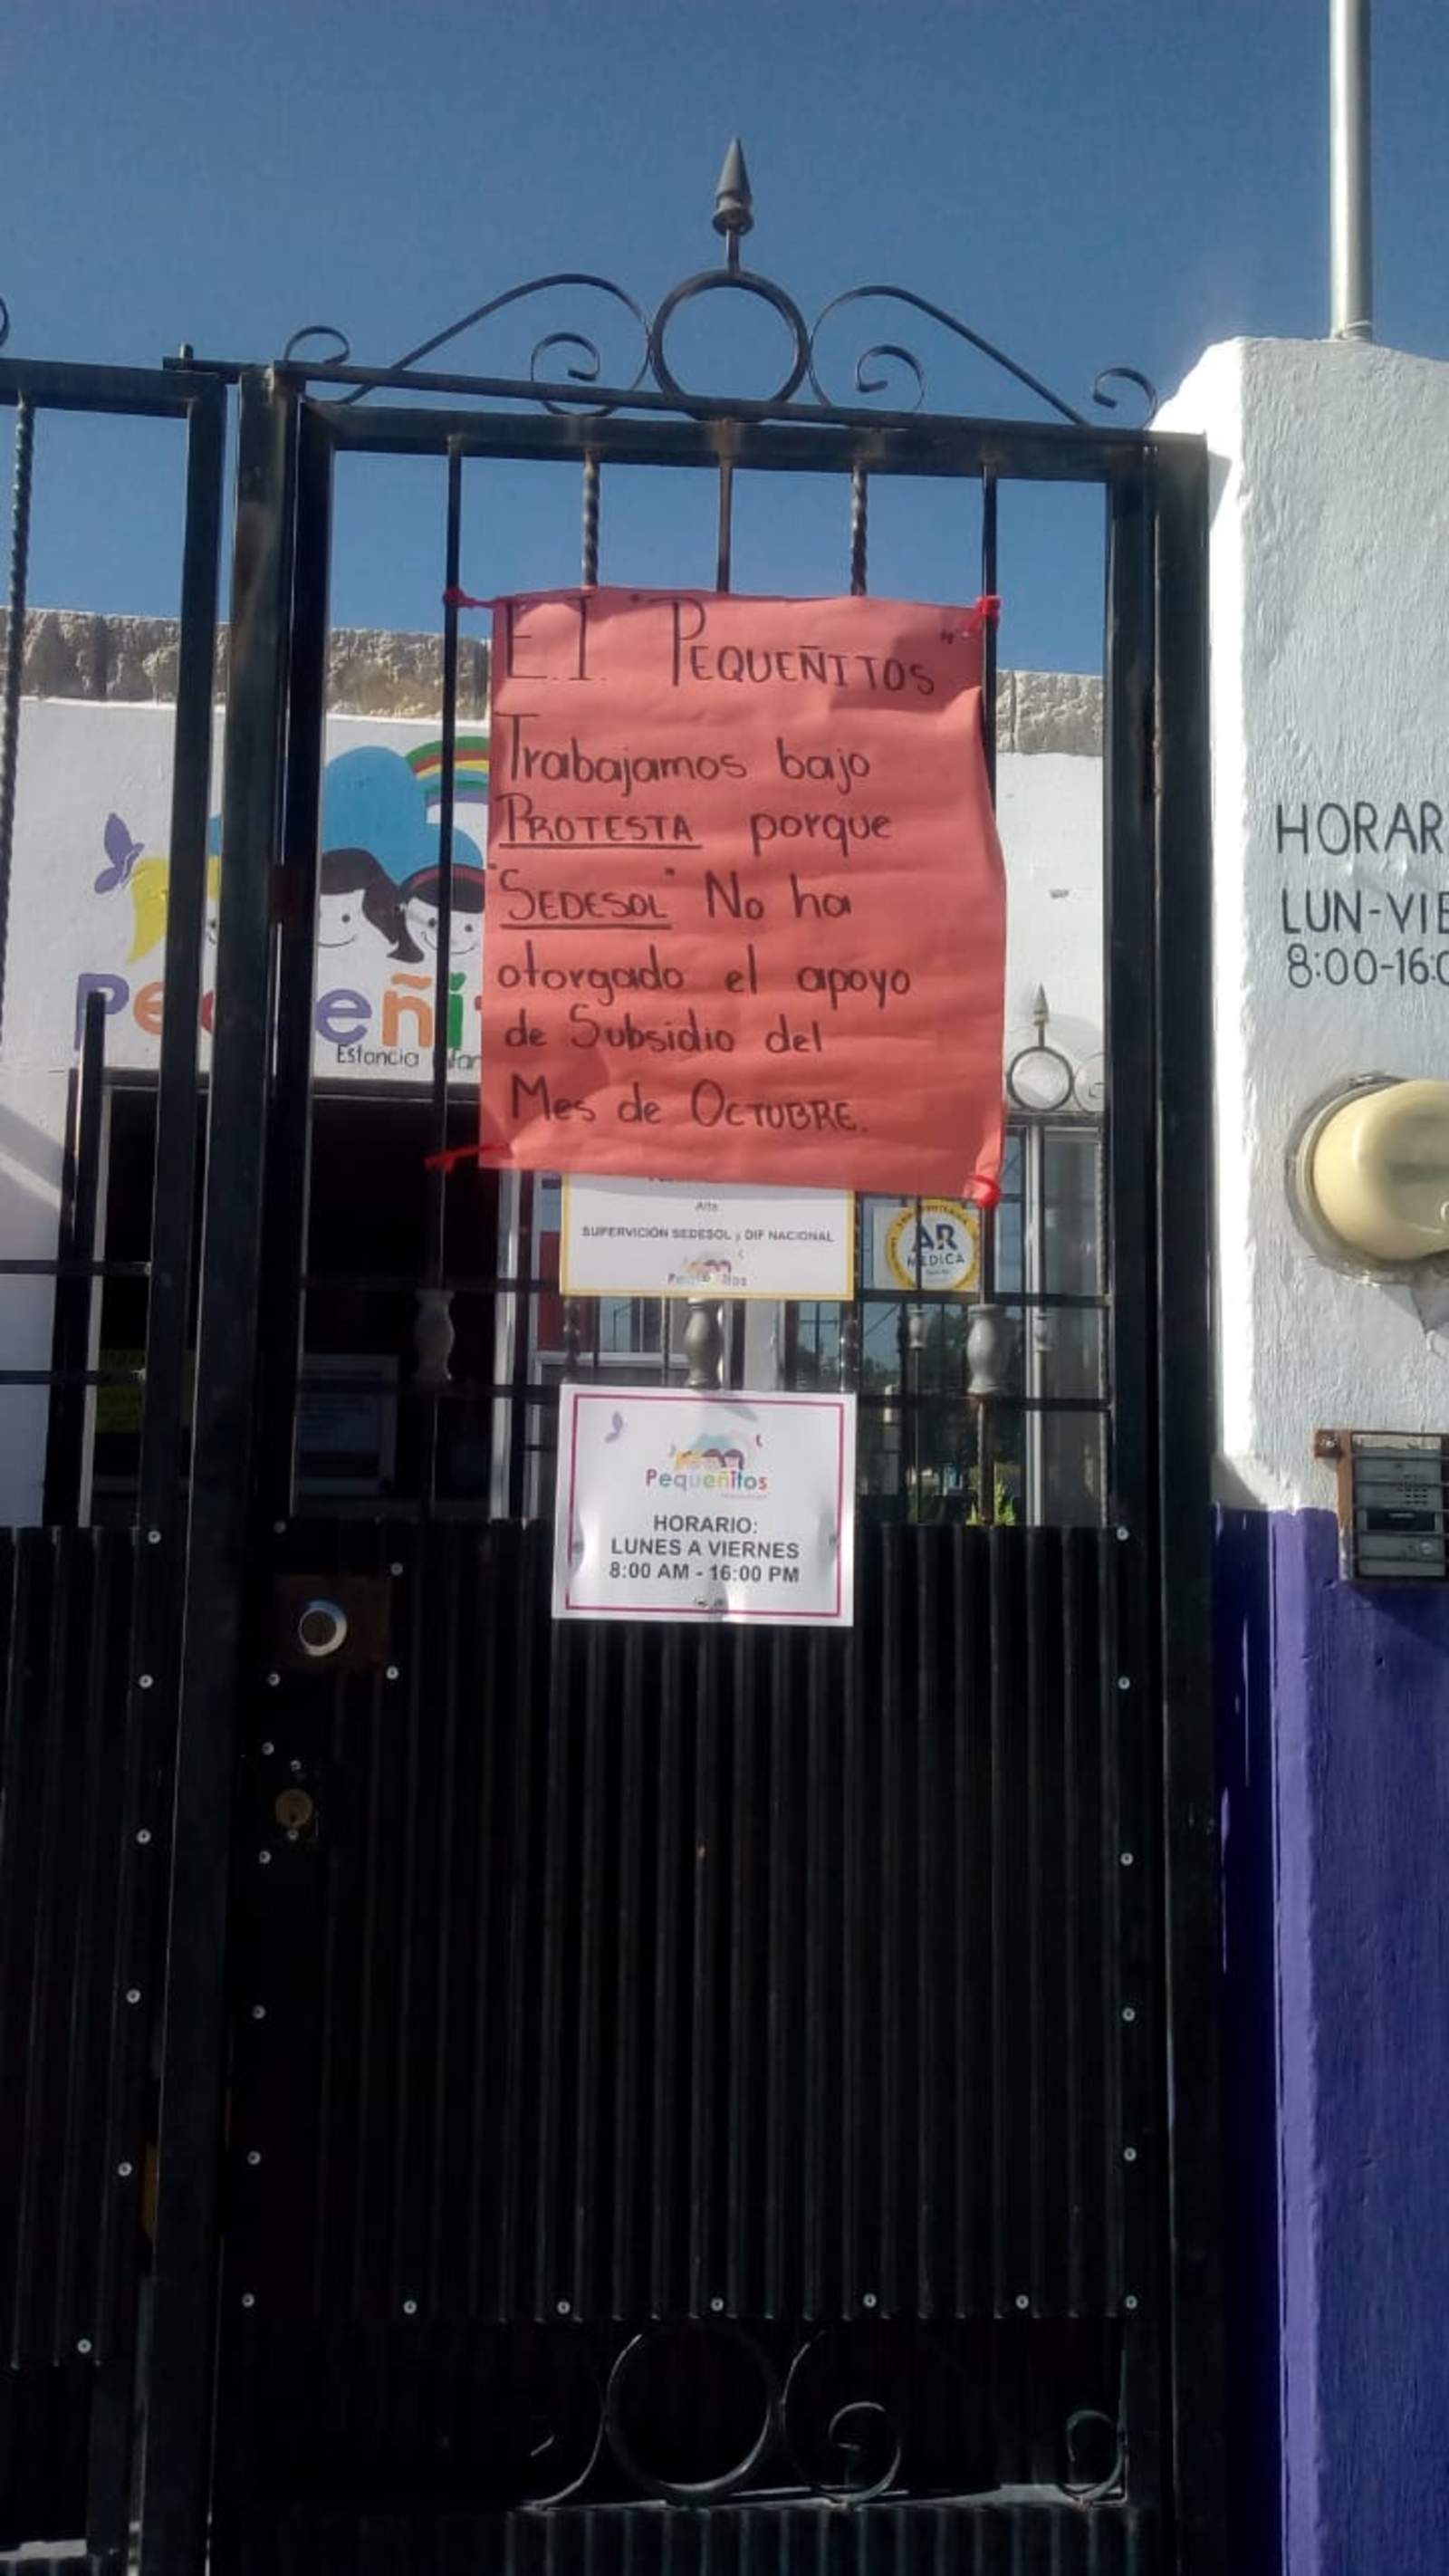 E.I. "PEQUEÑITOS"
Trabajamos bajo
PROTESTA porque
"SEDESOL" No ha
otorgado el apoyo
de Subsidio del
Mes de OCTUBRE.
Estancia
Arte
SUPERVICIÓN SEDESOL y DIF NACIONAL
AR
MEDICA
Pequeñitos
HORARIO:
LUNES A VIERNES
8:00 AM - 16:00 PM
HORAR
LUN-VIE
8:00-16:0